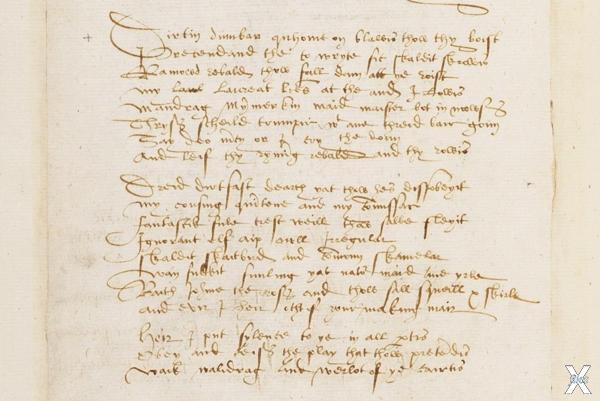 Dirtin Dumbar quhome on blawis thow thy boist
Pretendand the to wryte sic skaldit skrowis
Ramowd rebald thow fall doun att the roist
My laureat lres at the and I lowis
Mandrag mymmerkin maid maister bot in mows
Thrys scheild trumpir wt ane threid bair goun
Say deo mercy or I cry the doun
And leif thy ryming rebald and thy rowis
Dreid dirtfast dearch that thow hes dissobeyit
My cousing quintene and my commissar
Fantastik fule trest weill thow salbe fleyit
Ignorant elf aip owll irregular
Skaldit skaitbird and commoun skamelar
Wan fukkit funling that natour maid ane yrle
Baith Iohine the ros and thow sall squeill & skirle
And evir I heir ocht of your making mair
Heir I put sylence to the in all ptis
Obey and ceis the play that thow pretendis
Waik walidrag and werlot of the cairtis